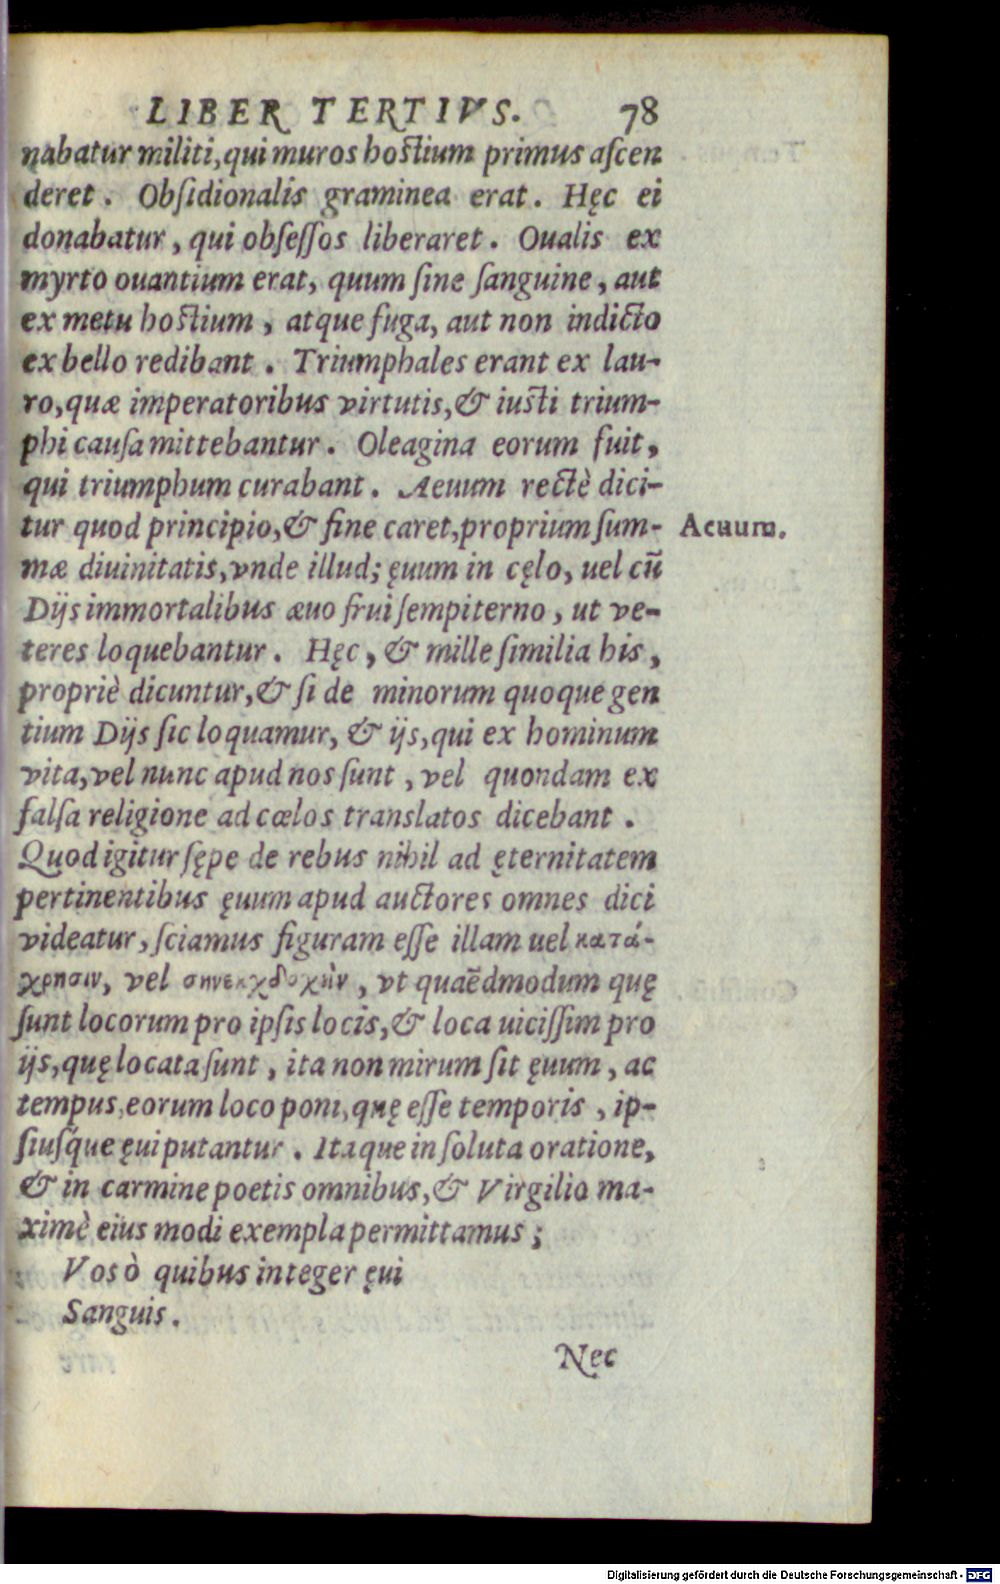 LIBER TERTIVS. 78
nabatur militi, qui muros hostium primus ascen
deret. Obsidionalis graminea erat. Hęc ei
donabatur, qui obsessos liberaret. Oualis ex
myrto ouantium erat, quum sine sanguine, aut
ex metu hostium, atque fuga, aut non indicto
ex bello redibant. Triumphales erant ex lau-
ro, quæ imperatoribus virtutis, & iusti trium-
phi causa mittebantur. Oleagina eorum fuit,
qui triumphum curabant. Aeuum rectè dici-
tur quod principio, & fine caret, proprium sum-
Aeuum.
mæ diuinitatis, vnde illud; ęuum in cęlo, uel cū
Dijs immortalibus æuo frui sempiterno, ut ve-
teres loquebantur. Hęc, & mille similia his,
propriè dicuntur, & si de minorum quoque gen
tium Dijs sic loquamur, & ijs, qui ex hominum
vita, vel nunc apud nos sunt, vel quondam ex
falsa religione ad cœlos translatos dicebant.
Quod igitur sępe de rebus nihil ad ęternitatem
pertinentibus ęuum apud auctores omnes dici
videatur, sciamus figuram esse illam uel κατά-
χρησιν, vel σηνεκχδοχὴν, vt quaēdmodum quę
sunt locorum pro ipsis locis, & loca uicissim pro
ijs, quę locata sunt, ita non mirum sit ęuum, ac
tempus eorum loco poni, quę esse temporis, ip-
siusq́ue ęui putantur. Itaque in soluta oratione,
& in carmine poetis omnibus, & Virgilio ma-
ximè eius modi exempla permittamus;
Vos ò quibus integer ęui
Sanguis.
Nec
Digitalisierung gefördert durch die Deutsche Forschungsgemeinschaft - DFG